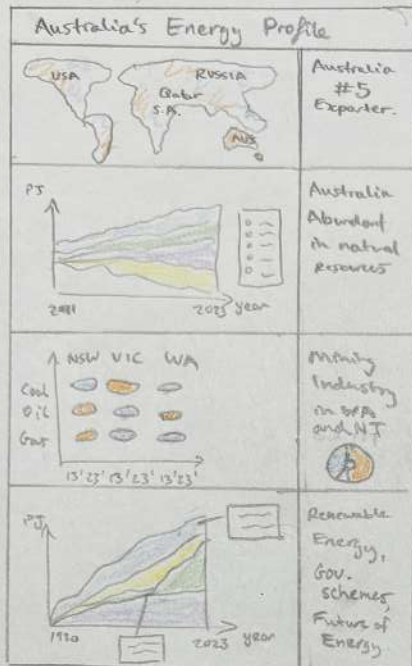 Australia's Energy Profile
USA
RUSSIA
Qatar
S.A.
AUS
Australia
#5
Exporter.
PJ
2023 year
Australia
Abundant
in natural
Resources
NSW VIC WA
Coal
Oil
Gas
13' 23' 13' 23' 13' 23'
Mining
Industry
in
and NT
PJ
2023 year
Renewable
Energy,
Gov.
schemes,
Future of
Energy